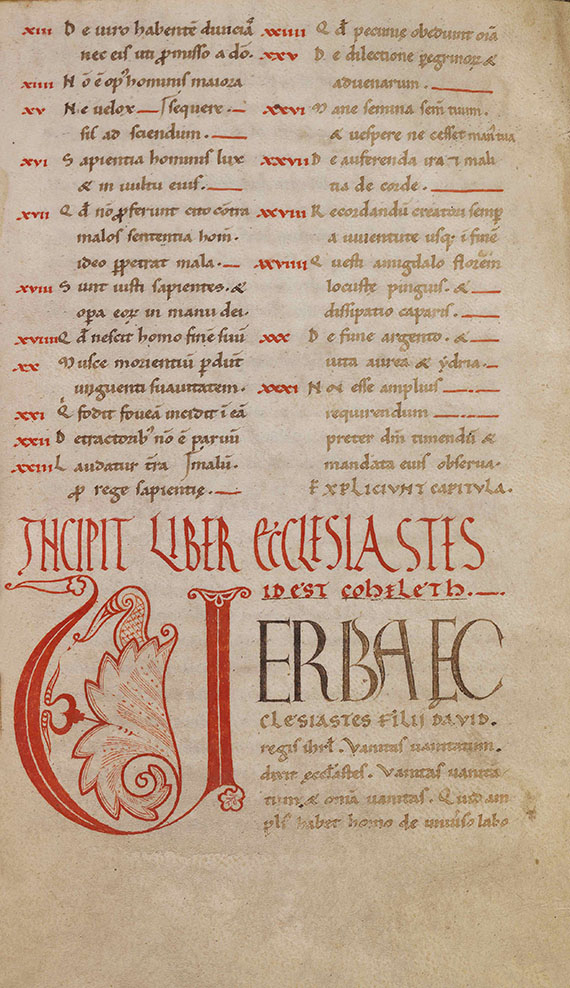 xiii De uiro habentē diuicia᷒
nec eis uti ꝑmisso a dō.
xiiii Nō ē opꝰ hominis maiora
xv Ne uelox sequere
fili ad sciendum.
xvi Sapientia hominis lux
& in uultu eius.
xvii Qđ nō ꝓferunt cito cōtra
malos sententia hom̄.
ideo ꝑpetrat mala.
xviii Sunt iusti sapientes. &
opa eoꝝ in manu dei.
xviiii Qđ nescit homo finē suū
xx Musce morientiū ꝑdunt
unguenti suauitatem.
xxi Q̇ fodit foueā incidit ī eā
xxii Detractoribꝰ nō ē paruū
xxiii Laudatur t̄ra malū.
ꝓ rege sapientię.
xxiiii Qđ pecunię obediunt oīa
xxv De dilectione ꝑegrinoꝝ &
aduenarum.
xxvi Mane semina sem̄ tuum.
& uespere ne cesset man᷒ tua
xxvii De auferenda ira ⁊ mali
tia de corde.
xxviii Recordandū creatori semꝑ
a iuuentute usq; ī finē
xxviiii Questi amigdalo florem̄
locustę pinguis. &
dissipatio caparis.
xxx De fune argento. &
uita aurea & ydria.
xxxi Non esse amplius
requirendum
preter dm̄ timendū &
mandata eius obserua.
EXPLICIUNT CAPITULA.
INCIPIT LIBER ECCLESIASTES
ID EST COHELETH.
UERBA EC
CLESIASTES FILII DAVID.
regis ihrl̄. Vanitas uanitatum.
dixit eccl̄astes. Vanitas uanita
tum & omīa uanitas. Quid am
pli᷒ habet homo de uniuerso labo